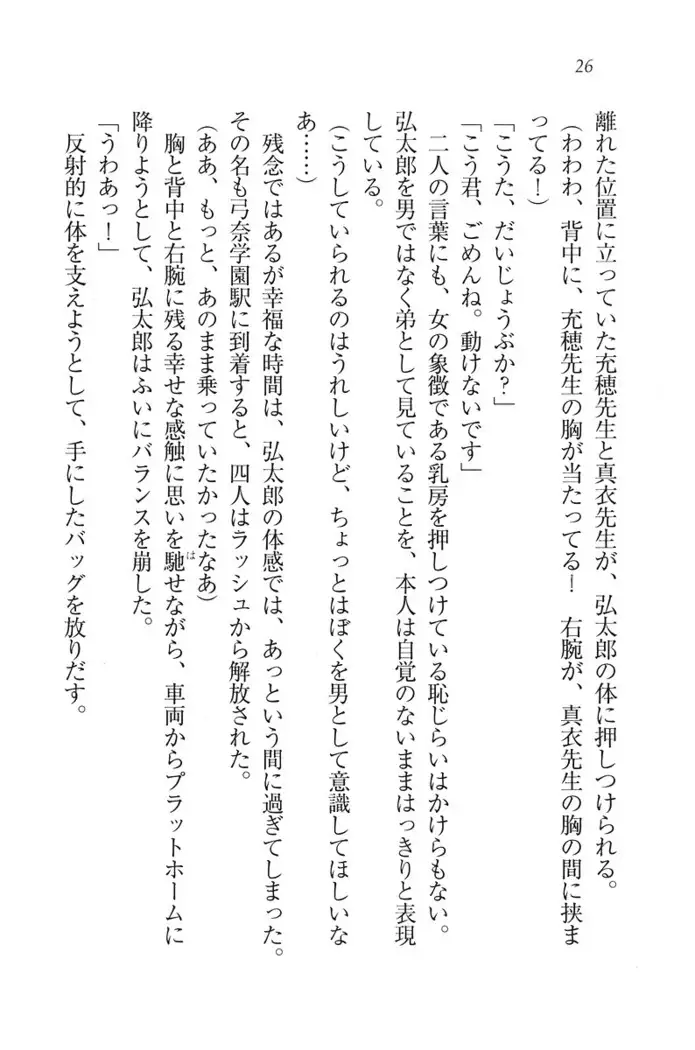 26
離れた位置に立っていた充穂先生と真衣先生が、弘太郎の体に押しつけられる。
（わわわ、背中に、充穂先生の胸が当たってる！　右腕が、真衣先生の胸の間に挟ま
ってる！）
「こうた、だいじょうぶか？」
「こう君、ごめんね。動けないです」
二人の言葉にも、女の象徴である乳房を押しつけている恥じらいはかけらもない。
弘太郎を男ではなく弟として見ていることを、本人は自覚のないままはっきりと表現
している。
（こうしていられるのはうれしいけど、ちょっとはぼくを男として意識してほしいな
あ……）
残念ではあるが幸福な時間は、弘太郎の体感では、あっという間に過ぎてしまった。
その名も弓奈学園駅に到着すると、四人はラッシュから解放された。
（ああ、もっと、あのまま乗っていたかったなあ）
胸と背中と右腕に残る幸せな感触に思いを馳は せながら、車両からプラットホームに
降りようとして、弘太郎はふいにバランスを崩した。
「うわあっ！」
反射的に体を支えようとして、手にしたバッグを放りだす。